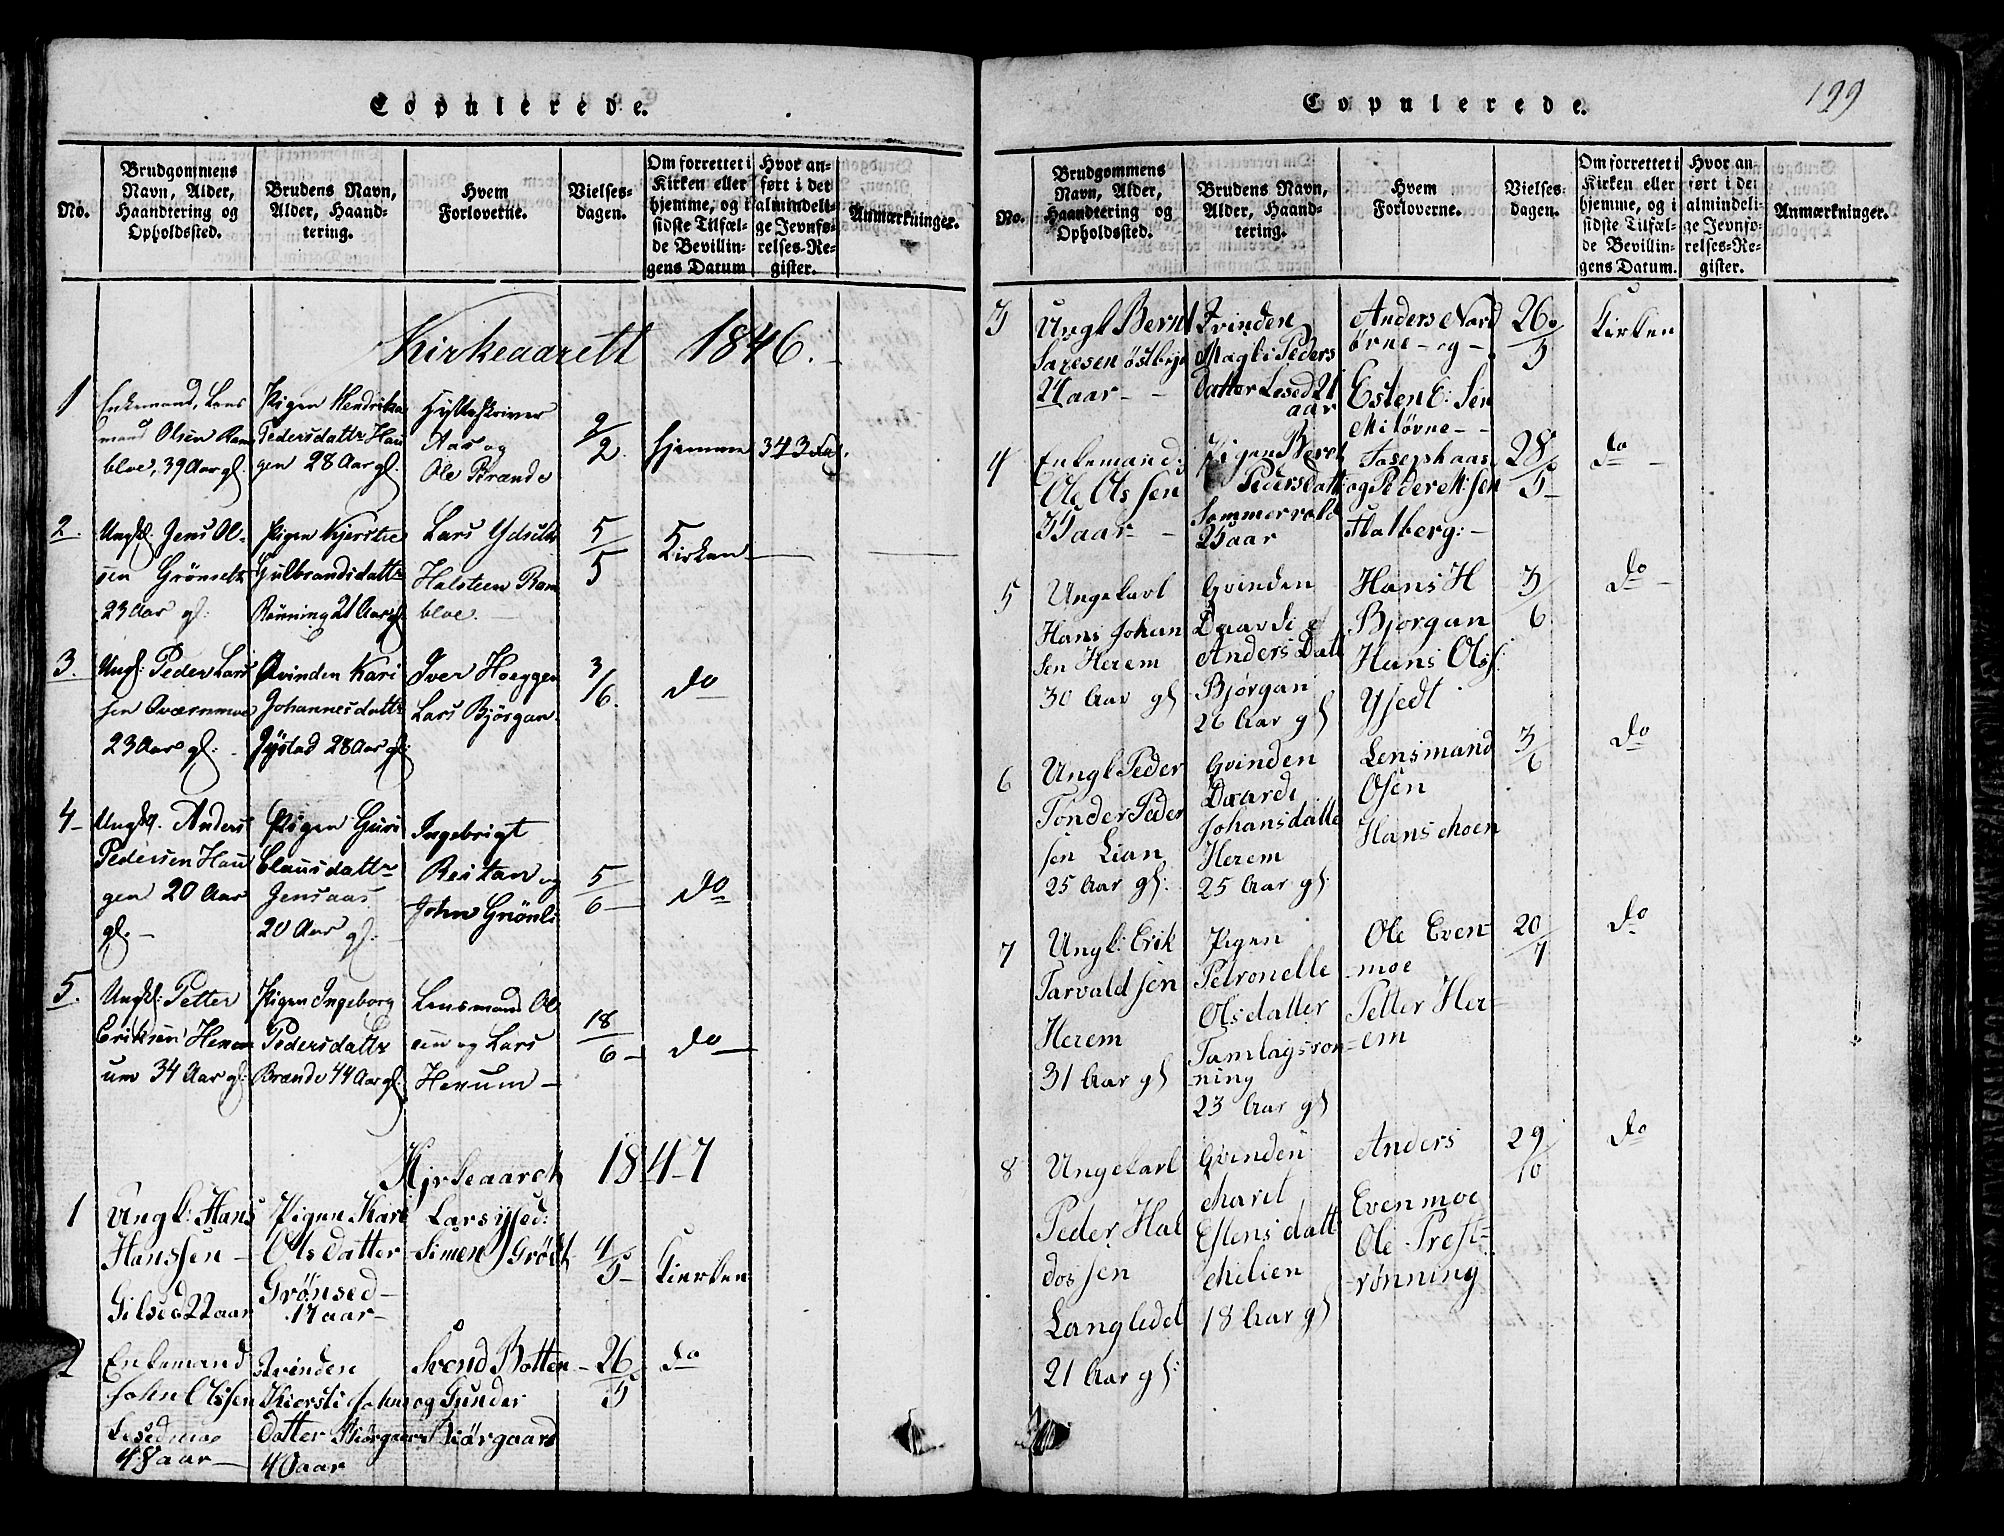 Copulerede.
No.
Brudgommens Navn, Alder, Haandtering og Opholdssted.
Brudens Navn, Alder, Haandtering.
Hvem Forloverne.
Vielsesdagen.
Om forrettet i Kirken eller hjemme, og i sidste Tilfælde Bevillingens Datum
Hvor anført i det almindelige Jevnførelses-Register.
Anmærkninger.
Kirkeaarett 1846.
1
Enkemand, Lens
mand Olsen Ram
bloe, 39 Aar gl.
Pigen Hendrikaa
Pedersdattr Hau
gen 28 Aar gl.
Hytteskriver
Aas og
Ole Brænde
2/2.
hjemme
343
2.
Ungk: Jens Ol-
sen Grönseth
23 Aar gl:
Pigen Kjerstie
Gulbrandsdattr
Rönning 21 Aar gl.
Lars Ydseth
Halsteen Ram
bloe.
5/5
Kirken
3.
Ungk: Peder Lars
sen Qværnmoe
23 Aar gl:
Qvinden Kari
Johannesdattr
28 Aar gl:
Iver Hoeggen
Lars Bjørgan
3/6.
do
4-
Ungk. Anders
Pedersen Hau
gen 20 Aar
gl. -
Pigen Guri
Clausdattr
Jensaas
20 Aar gl:
Ingebrigt
Reitan og
John Grönli
5/6-
do
5.
Ungk: Petter
Eriksen Herem
um 34 Aar gl:
Pigen Ingeborg
Pedersdattr
Brænde 44 Aar gl.
Lensmand Ol
sen og Lars
Herum-
18/6-
do
Kirkeaaret 1847
1
Ungk: Hans
Hanssen-
Gilsed 22 aar
Pigen Kari
Olsdatter
Grönsed-
17 aar-
Lars ysed:
Simen Grödt
4/5-
Kierken
2
Enkemand
John Olssen
Lesedmoe
48 aar-
Qvinden
Kiersti Johns
datter Biörgaar
40 aar
Svend Botten
og Gunder
Biörgaard
26/5
do
Copulerede.
199
No.
Brudgommens Navn, Alder, Haandtering og Opholdssted.
Brudens Navn, Alder, Haandtering.
Hvem Forloverne.
Vielsesdagen.
Om forrettet i Kirken eller hjemme, og i sidste Tilfælde Bevillingens Datum.
Hvor anført i det almindelige Jevnførelses-Register.
Anmærkninger.
3
Ungk Bernt
Saxesen østbye
24 aar - -
Qvinden
Magli Peders
datter Lesed 21
aar
Anders Nord
övne- og-
Esten E: Sen
Mitövne- -
26/5
Kirken
4
Enkemand:
Ole Olssen
35 aar- -
Pigen Beret
Pedersdatt
Sommervold
25 aar
Joseph aas
og Peder M:sen
Halberg:-
28/5-
do -
5
Ungekarl
Hans Johan
sen Herem
30 Aar gl
Gvinden
Daardi
Anders Datt
Bjørgan
26 Aar gl
Hans H
Bjorgan
Hans Olss.
Ysedt
3/6
do -
6
Ungk Peder
Tønder Peder
sen Lian
25 Aar gl:
Gvinden
Daarde
Johansdatte
Herem
25 Aar gl:
Lensmand
Osen
Hans Moen
3/6
do
7
Ungk: Erik
Tarvaldsen
Herem
31 Aar gl
Pigen
Petronelle
Olsdatter
Tamlagsron-
ning
23 Aar gl
Ole Even-
moe
Petter Her-
em
20/7
do
8
Ungekarl
Peder Hal
dossen
Langledet
21 Aar gl:
Gvinden
Marit
Estensdatt
Milien
18 Aar gl
Anders
Evenmoe
Ole Prest-
rønning
29/10
do